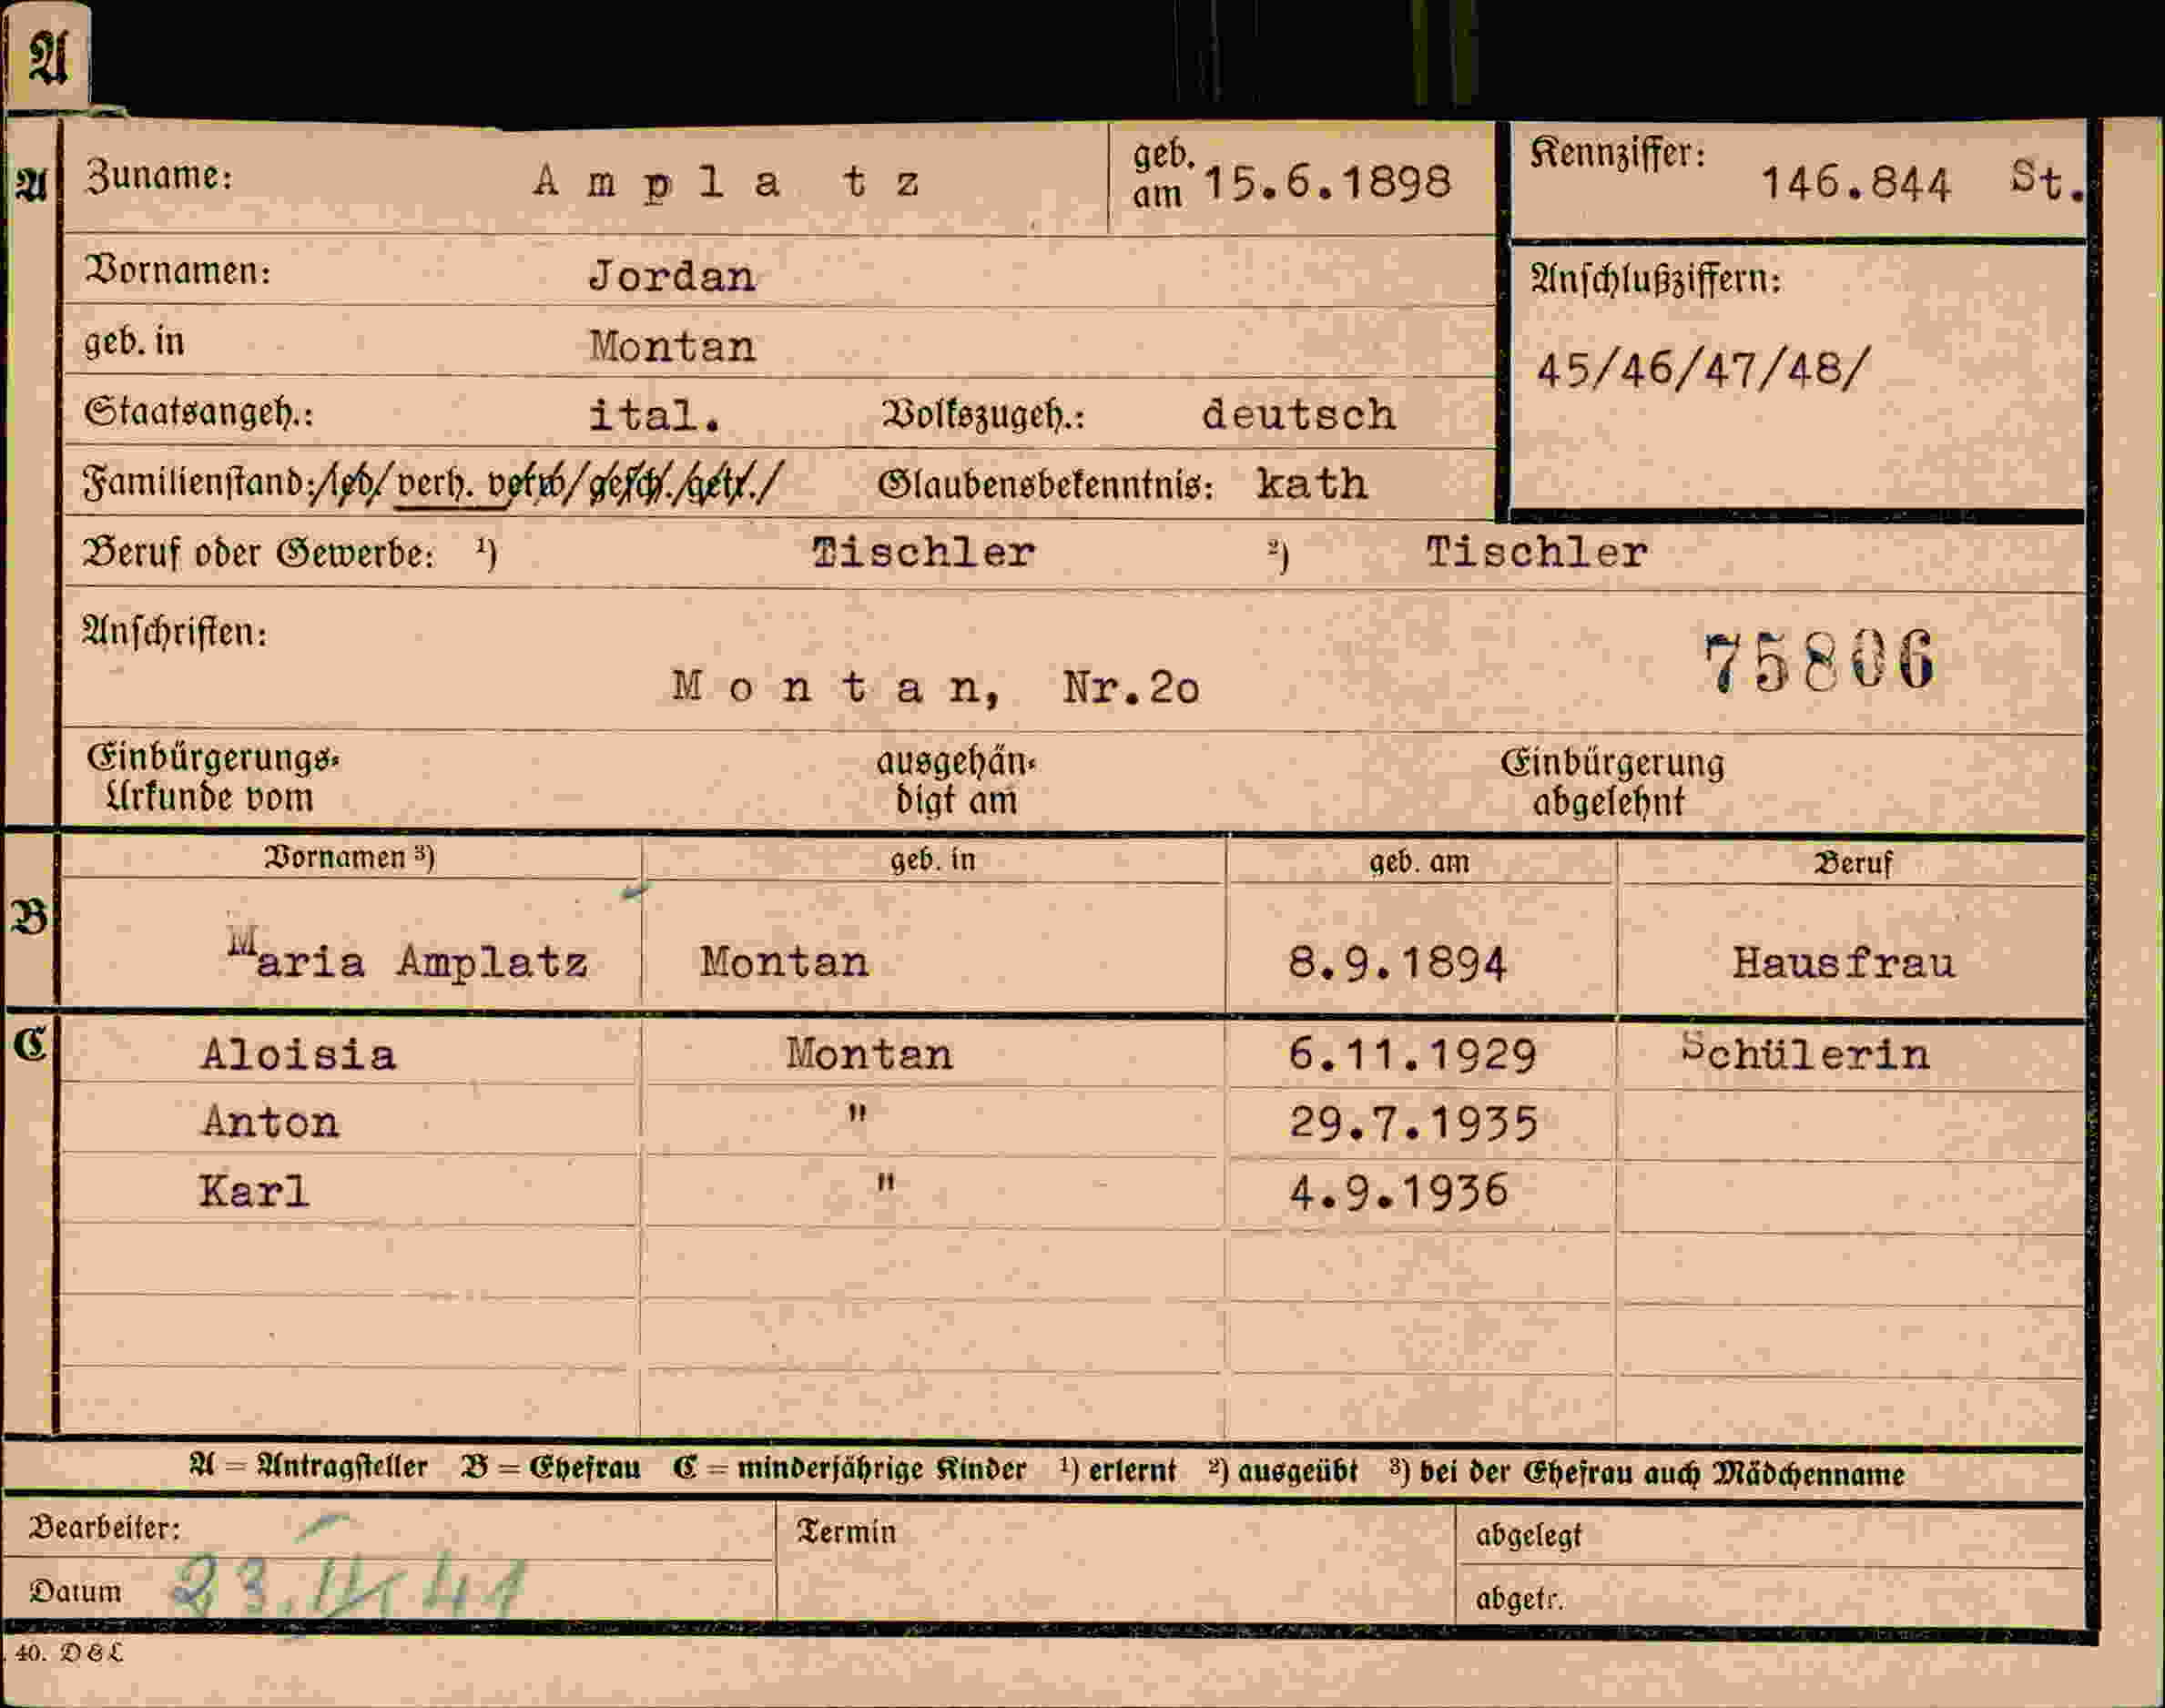 A
A
Zuname: Ampla tz geb. am 15.6.1898 Kennziffer: 146.844 St.
Vornamen: Jordan Anschlußziffern:
geb. in Montan 45/46/47/48/
Staatsangeh.: ital. Volkszugeh.: deutsch
Familienstand: /led/ verh. verw/gesch./getr./ Glaubensbekenntnis: kath
Beruf oder Gewerbe: ¹) Tischler ²) Tischler
Anschriften: 75806
Montan, Nr.2o
Einbürgerungs-Urkunde vom ausgehändigt am Einbürgerung abgelehnt
Vornamen ³) geb. in geb. am Beruf
B Maria Amplatz Montan 8.9.1894 Hausfrau
C Aloisia Montan 6.11.1929 Schülerin
Anton " 29.7.1935
Karl " 4.9.1936
A = Antragsteller B = Ehefrau C = minderjährige Kinder ¹) erlernt ²) ausgeübt ³) bei der Ehefrau auch Mädchenname
Bearbeiter: Termin abgelegt
Datum 23. 41 abgetr.
40. D&L